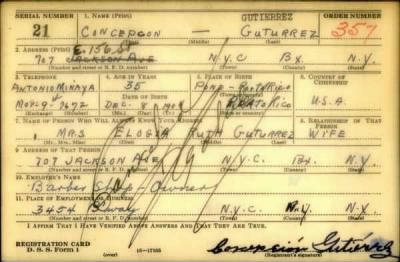 SERIAL NUMBER 1. NAME (Print) GUTIERREZ ORDER NUMBER
21 CONCEPCION — GUTURREZ 357
(First) (Middle) (Last)
E. 156 St
2. ADDRESS (Print)
707 JACKSON AVE N.Y.C BX. N.Y.
(Number and street or R. F. D. number) (Town) (County) (State)
3. TELEPHONE 4. AGE IN YEARS 5. PLACE OF BIRTH 6. COUNTRY OF CITIZENSHIP
ANTONIO MINAYA 35
DATE OF BIRTH PORTO RICO U.S.A.
9672 DEC. 8
7. NAME OF PERSON WHO WILL ALWAYS KNOW YOUR ADDRESS 8. RELATIONSHIP OF THAT PERSON
MRS ELOGIA RUTH GUTURREZ WIFE
(Mr., Mrs., Miss) (First) (Middle) (Last)
9. ADDRESS OF THAT PERSON
707 JACKSON AVE N.Y.C. BX. N.Y.
(Number and street or R. F. D. number) (Town) (County) (State)
10. EMPLOYER'S NAME
Barber Shop - Owner
11. PLACE OF EMPLOYMENT OR BUSINESS
3454 N.Y.C. N.Y. N.Y.
(Number and street or R. F. D. number) (Town) (County) (State)
I AFFIRM THAT I HAVE VERIFIED ABOVE ANSWERS AND THAT THEY ARE TRUE.
REGISTRATION CARD
D. S. S. Form 1 (over) 16—17105 Concepcion Gutiérrez
(Registrant's signature)